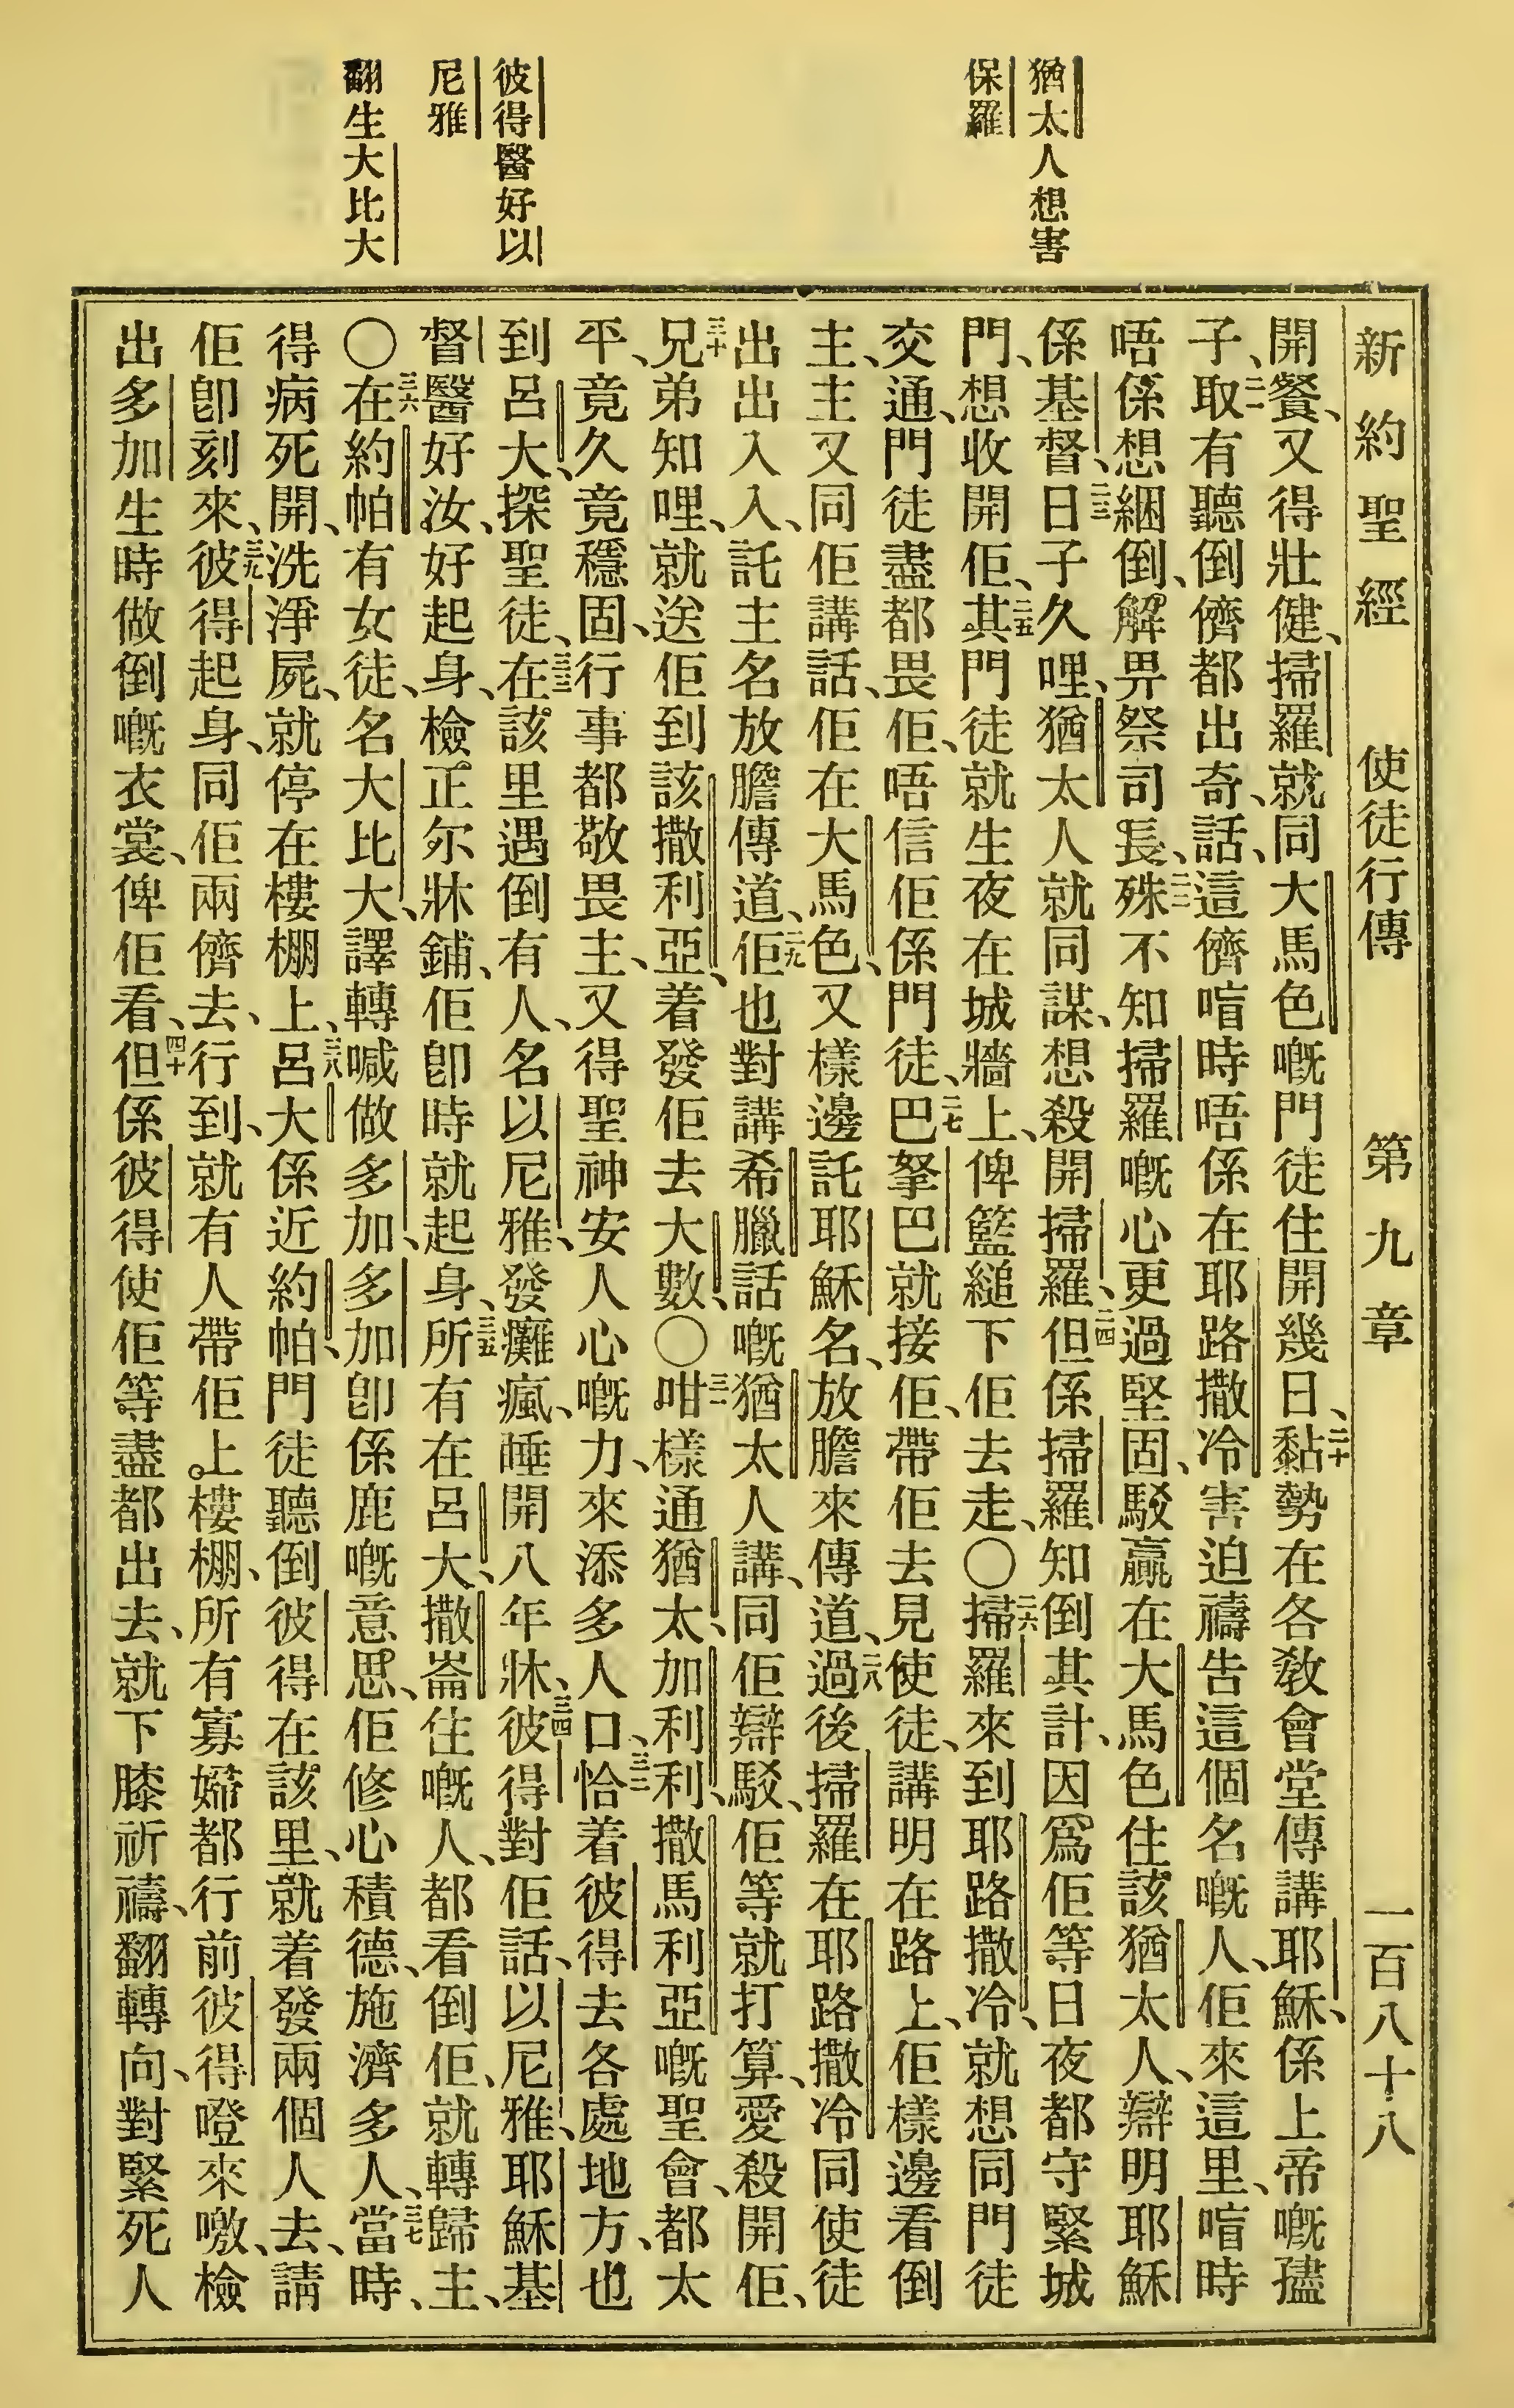 猶太人想害
保羅
彼得醫好以
尼雅
翻生大比大
新約聖經 使徒行傳 第九章 一百八十八
開餐、又得壯健、掃羅就同大馬色嘅門徒住開幾日、二十黏勢在各敎會堂傳講耶穌、係上帝嘅孻
子、二一取有聽倒儕都出奇、話、這儕喧時唔係在耶路撒冷害迫禱告這個名嘅人、佢來這里、喧時
唔係想綑倒、解畀祭司長、二二殊不知掃羅嘅心更過堅固、駁贏在大馬色住該猶太人、辯明耶穌
係基督、二三日子久哩、猶太人就同謀、想殺開掃羅、二四但係掃羅知倒其計、因爲佢等日夜都守緊城
門、想收開佢、二五其門徒就生夜在城牆上、俾籃縋下佢去走、〇二六掃羅來到耶路撒冷、就想同門徒
交通、門徒盡都畏佢、唔信佢係門徒、二七巴拏巴就接佢、帶佢去見使徒、講明在路上、佢樣邊看倒
主、主又同佢講話、佢在大馬色、又樣邊託耶穌名、放膽來傳道、二八過後掃羅在耶路撒冷同使徒
出出入入、託主名放膽傳道、二九佢也對講希臘話嘅猶太人講、同佢辯駁、佢等就打算、愛殺開佢、
三十兄弟知哩、就送佢到該撒利亞、着發佢去大數、〇三一咁樣通猶太、加利利、撒馬利亞嘅聖會、都太
平、竟久竟穩固、行事都敬畏主、又得聖神安人心嘅力、來添多人口、三二恰着彼得去各處地方、也
到呂大、探聖徒、三三在該里遇倒有人、名以尼雅、發癱瘋、睡開八年牀、三四彼得對佢話、以尼雅、耶穌基
督醫好汝、好起身、檢正尔牀鋪、佢卽時就起身、三五所有在呂大、撒崙住嘅人、都看倒佢、就轉歸主、
〇三六在約帕有女徒、名大比大、譯轉喊做多加、多加卽係鹿嘅意思、佢修心積德、施濟多人、三七當時、
得病死開、洗淨屍、就停在樓棚上、三八呂大係近約帕、門徒聽倒彼得在該里、就着發兩個人去、請
佢卽刻來、三九彼得起身、同佢兩儕去、行到、就有人帶佢上樓棚、所有寡婦都行前彼得噔來噭、檢
出多加生時做倒嘅衣裳、俾佢看、四十但係彼得使佢等盡都出去、就下膝祈禱、翻轉向、對緊死人